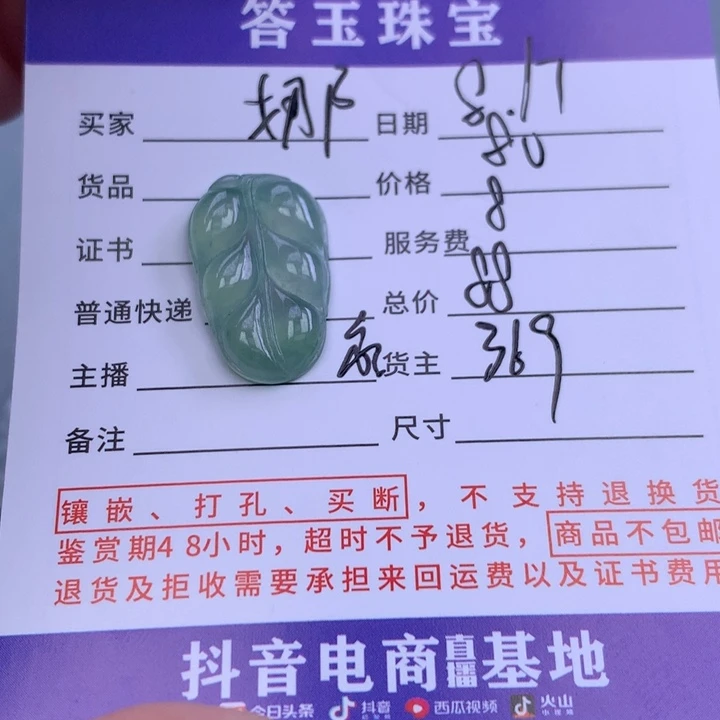 答玉珠宝
买家 娜 日期 8.17
货品 价格 80
证书 服务费 8
普通快递 总价 88
主播 货主 369
备注 尺寸
镶嵌、打孔、买断，不支持退换货
鉴赏期48小时，超时不予退货，商品不包邮
退货及拒收需要承担来回运费以及证书费用
抖音电商直播基地
今日头条 抖音 西瓜视频 火山